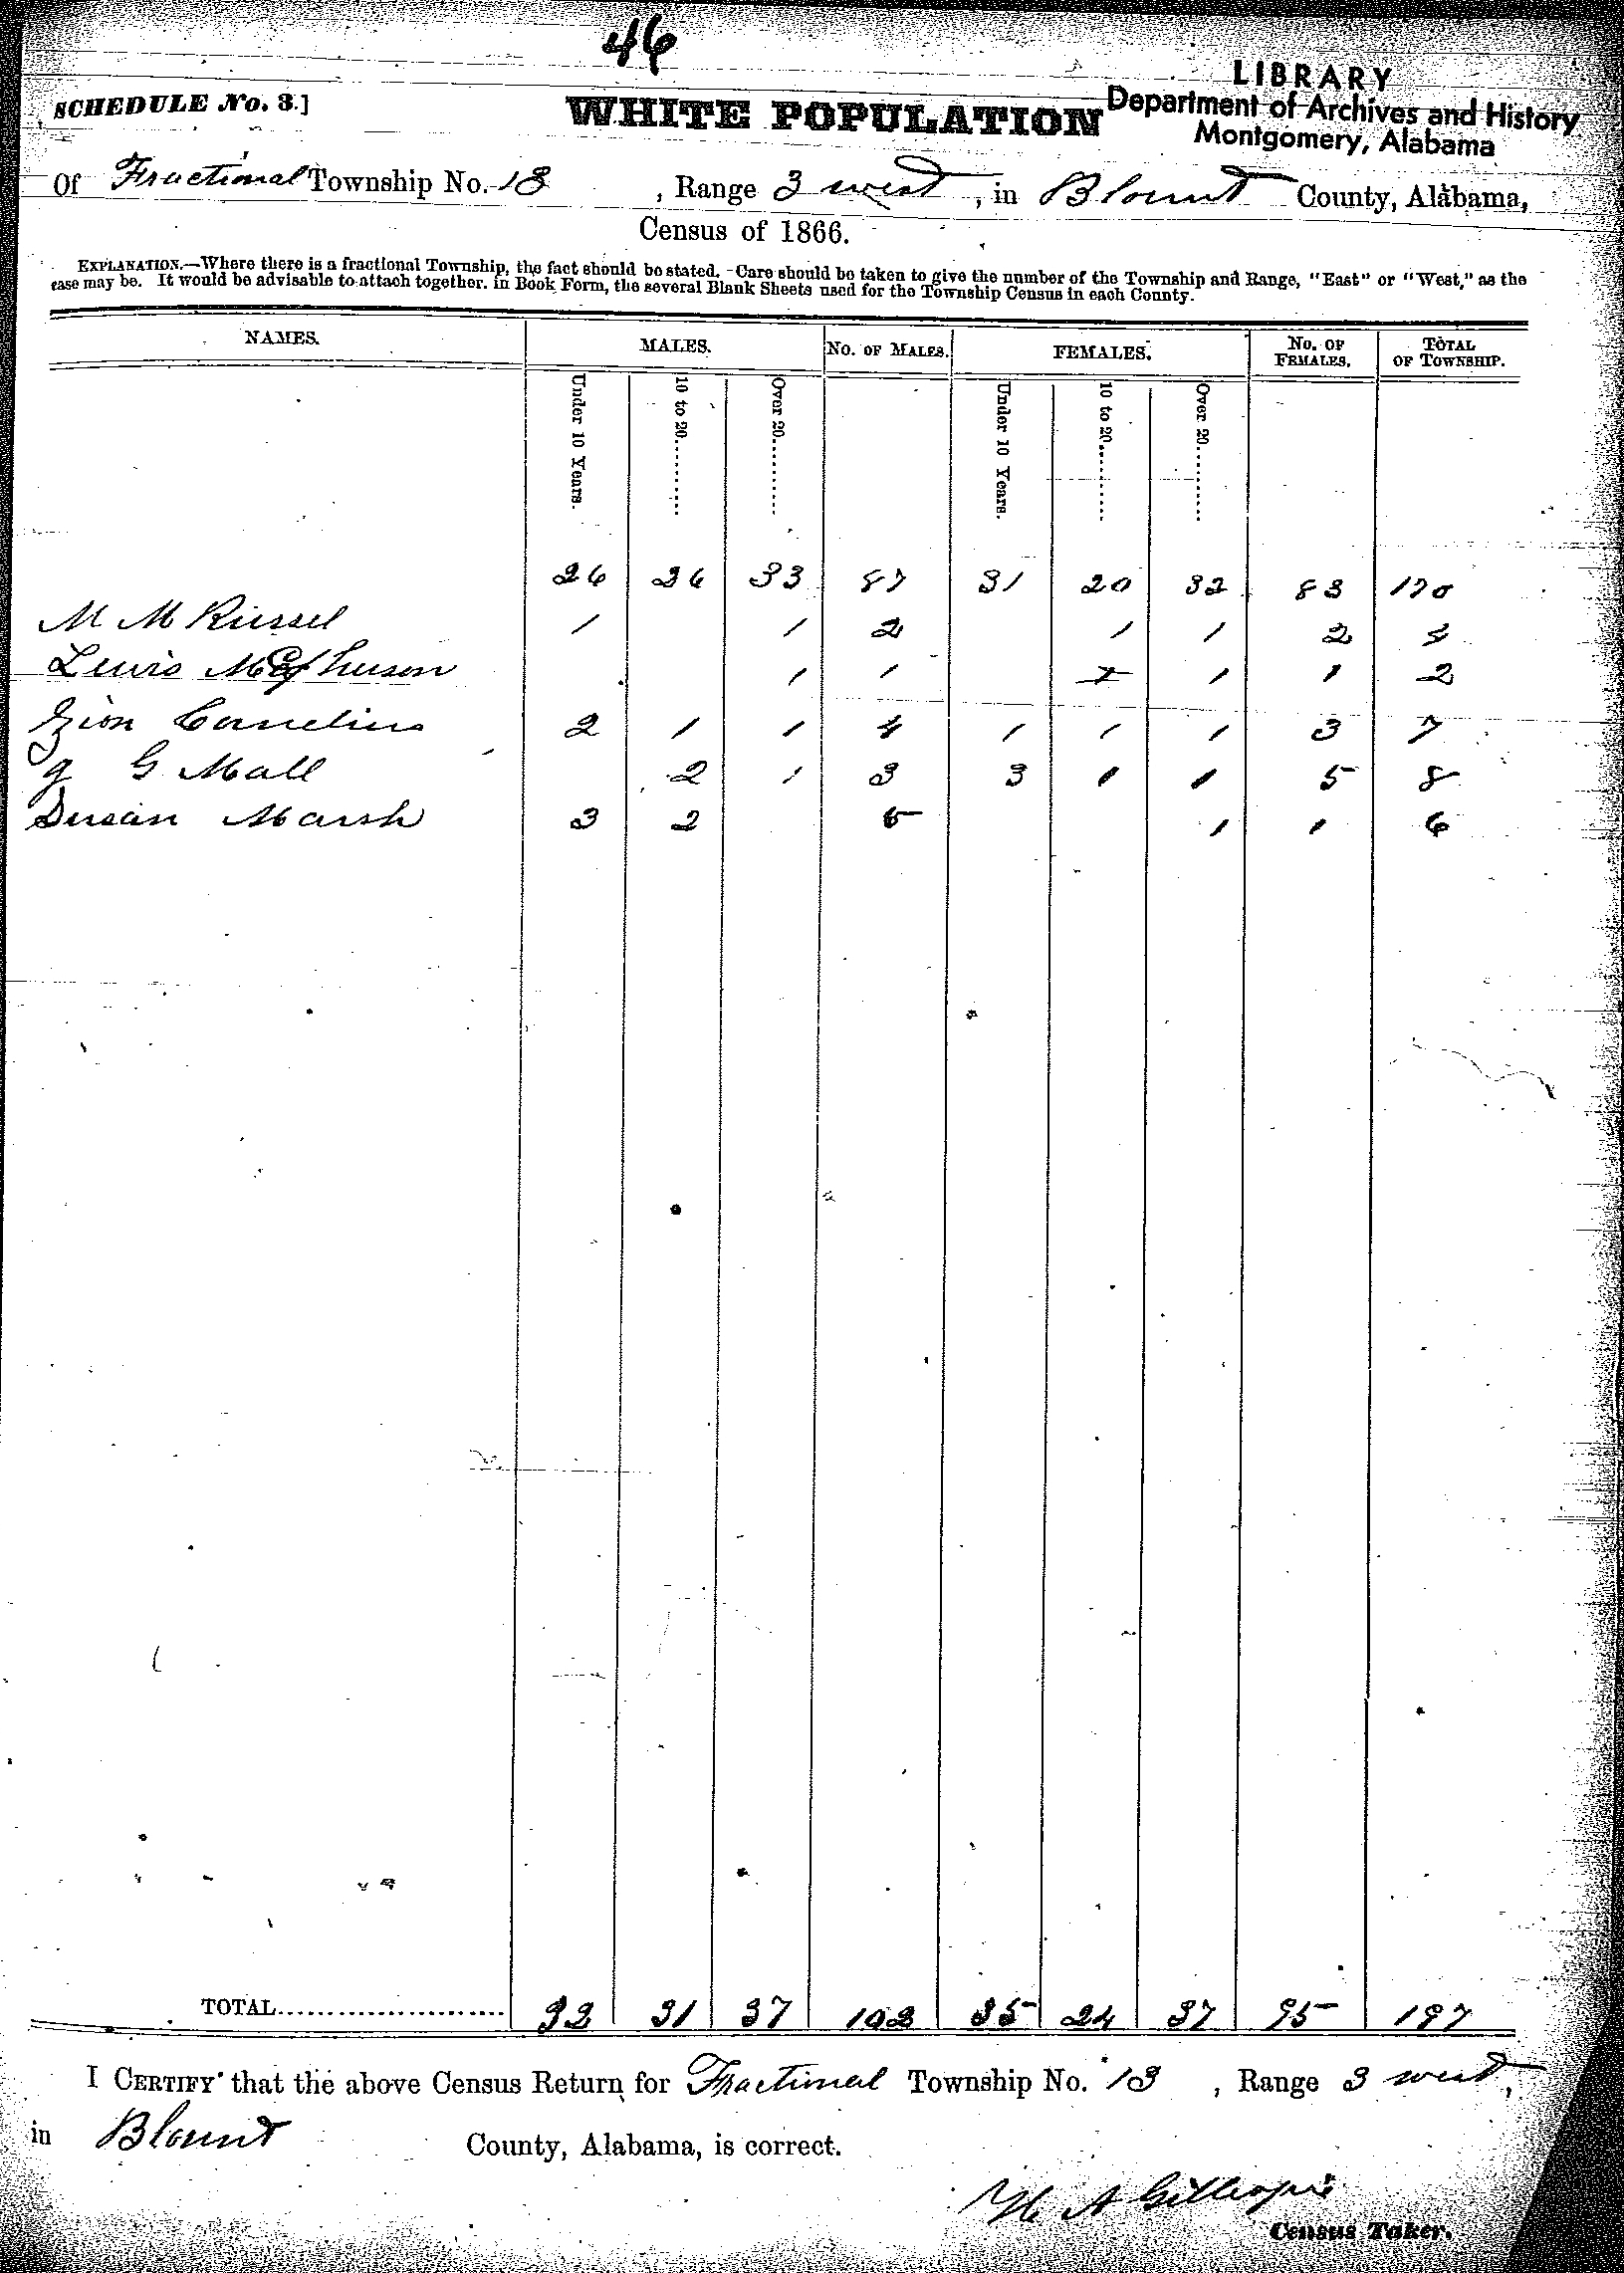 46
LIBRARY
Department of Archives and History
Montgomery, Alabama
SCHEDULE No. 3.]
WHITE POPULATION
Of Fractional Township No. 13, Range 3 west, in Blount County, Alabama,
Census of 1866.
EXPLANATION.—Where there is a fractional Township, the fact should be stated. Care should be taken to give the number of the Township and Range, "East" or "West," as the
case may be. It would be advisable to attach together, in Book Form, the several Blank Sheets used for the Township Census in each County.
NAMES. MALES. No. OF MALES. FEMALES. No. OF FEMALES. TOTAL OF TOWNSHIP.
Under 10 Years. 10 to 20......... Over 20......... Under 10 Years. 10 to 20......... Over 20.........
26 26 33 87 31 20 32 83 170
M M Russel 1 1 2 1 1 2 4
Lewis McPherson 1 1 1 1 1 2
Zion Cornelius 2 1 1 4 1 1 1 3 7
G Mall 2 1 3 3 1 1 5 8
Susan Marsh 3 2 5 1 1 6
TOTAL...................... 32 31 37 102 35 24 37 95 197
I CERTIFY that the above Census Return for Fractional Township No. 13, Range 3 west,
in Blount County, Alabama, is correct.
A Gillespie
Census Taker.